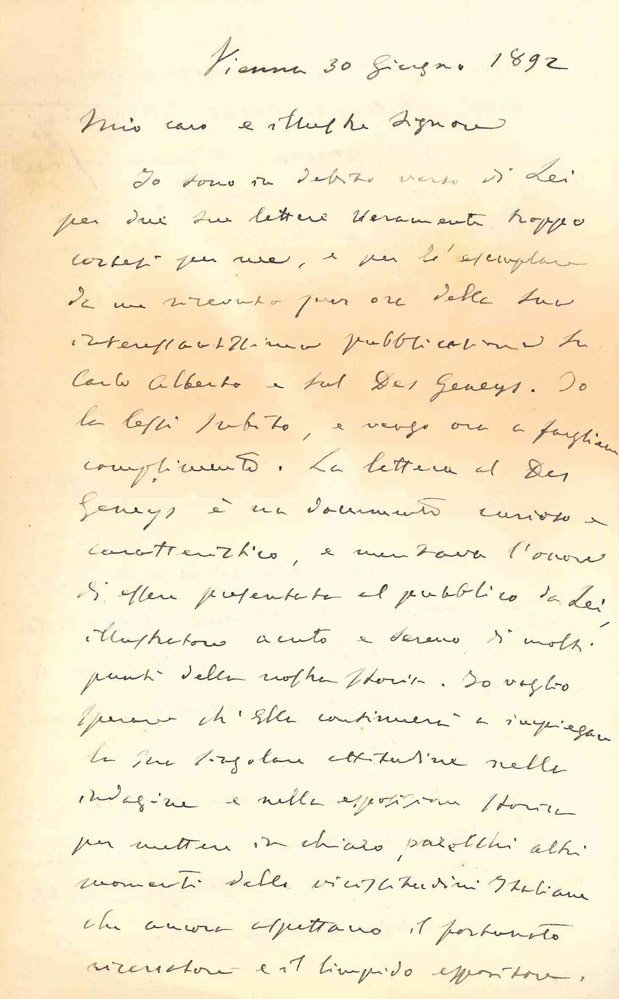 Vienna 30 Giugno 1892
Mio caro e illustre Signore
Io sono in debito verso di Lei
per due sue lettere veramente troppo
cortesi per me, e per l'esemplare
da me ricevuto pur ora della sua
interessantissima pubblicazione su
Carlo Alberto e sul Des Geneys. Io
la lessi subito, e vengo ora a fargliene
complimento. La lettera al Des
Geneys è un documento curioso e
caratteristico, e meritava l'onore
di essere presentata al pubblico da Lei,
illustratore acuto e sereno di molti
punti della nostra storia. Io voglio
sperare ch'Ella continuerà a impiegare
la sua singolare attitudine nella
indagine e nella esposizione storica
per mettere in chiaro parecchi altri
momenti delle vicissitudini Italiane
che ancora aspettano il fortunato
ricercatore e il limpido espositore.